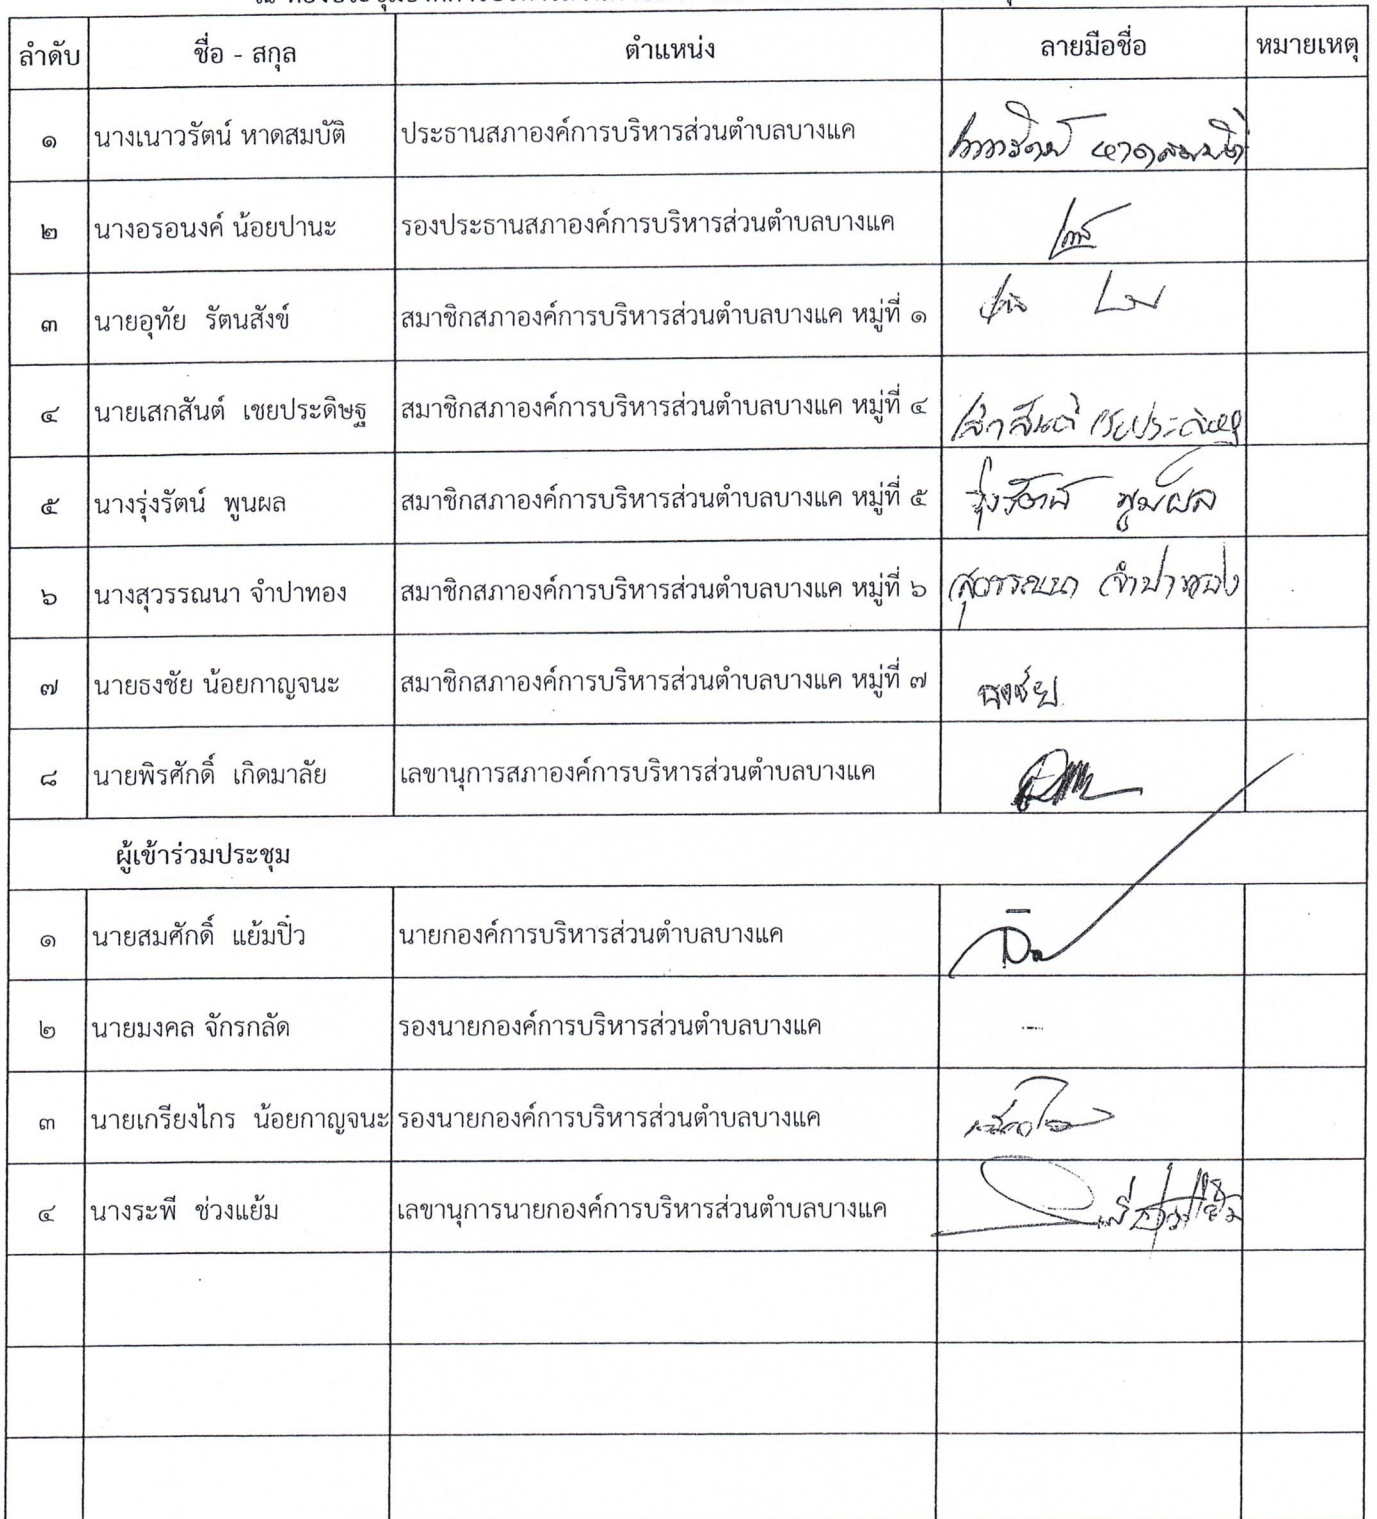 ลำดับ ชื่อ - สกุล ตำแหน่ง ลายมือชื่อ หมายเหตุ
๑ นางเนาวรัตน์ หาดสมบัติ ประธานสภาองค์การบริหารส่วนตำบลบางแค เนาวรัตน์ หาดสมบัติ
๒ นางอรอนงค์ น้อยปานะ รองประธานสภาองค์การบริหารส่วนตำบลบางแค
๓ นายอุทัย รัตนสังข์ สมาชิกสภาองค์การบริหารส่วนตำบลบางแค หมู่ที่ ๑
๔ นายเสกสันต์ เชยประดิษฐ สมาชิกสภาองค์การบริหารส่วนตำบลบางแค หมู่ที่ ๔ เสกสันต์ เชยประดิษฐ
๕ นางรุ่งรัตน์ พูนผล สมาชิกสภาองค์การบริหารส่วนตำบลบางแค หมู่ที่ ๕ รุ่งรัตน์ พูนผล
๖ นางสุวรรณนา จำปาทอง สมาชิกสภาองค์การบริหารส่วนตำบลบางแค หมู่ที่ ๖ สุวรรณนา จำปาทอง
๗ นายธงชัย น้อยกาญจนะ สมาชิกสภาองค์การบริหารส่วนตำบลบางแค หมู่ที่ ๗ ธงชัย
๘ นายพิรศักดิ์ เกิดมาลัย เลขานุการสภาองค์การบริหารส่วนตำบลบางแค
ผู้เข้าร่วมประชุม
๑ นายสมศักดิ์ แย้มปิ๋ว นายกองค์การบริหารส่วนตำบลบางแค
๒ นายมงคล จักรกลัด รองนายกองค์การบริหารส่วนตำบลบางแค -
๓ นายเกรียงไกร น้อยกาญจนะ รองนายกองค์การบริหารส่วนตำบลบางแค
๔ นางระพี ช่วงแย้ม เลขานุการนายกองค์การบริหารส่วนตำบลบางแค